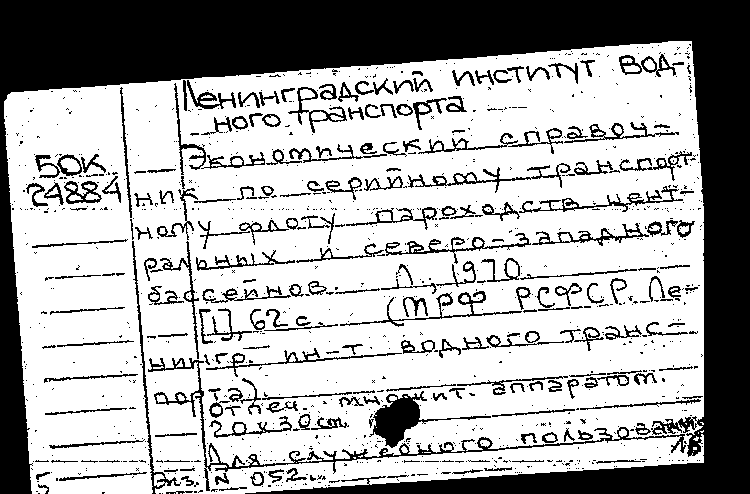 Ленинградский институт вод-
ного транспорта
50К
24884
Экономический справоч-
ник по серийному транспорт-
ному флоту пароходств цент-
ральных и северо-западного
бассейнов. Л., 1970.
[1], 62 с. (МРФ РСФСР. Ле-
нингр. ин-т водного транс-
порта).
отпеч. множит. аппаратом.
20x30 cm.
Для служебного пользования
16
5 Экз. N 052.